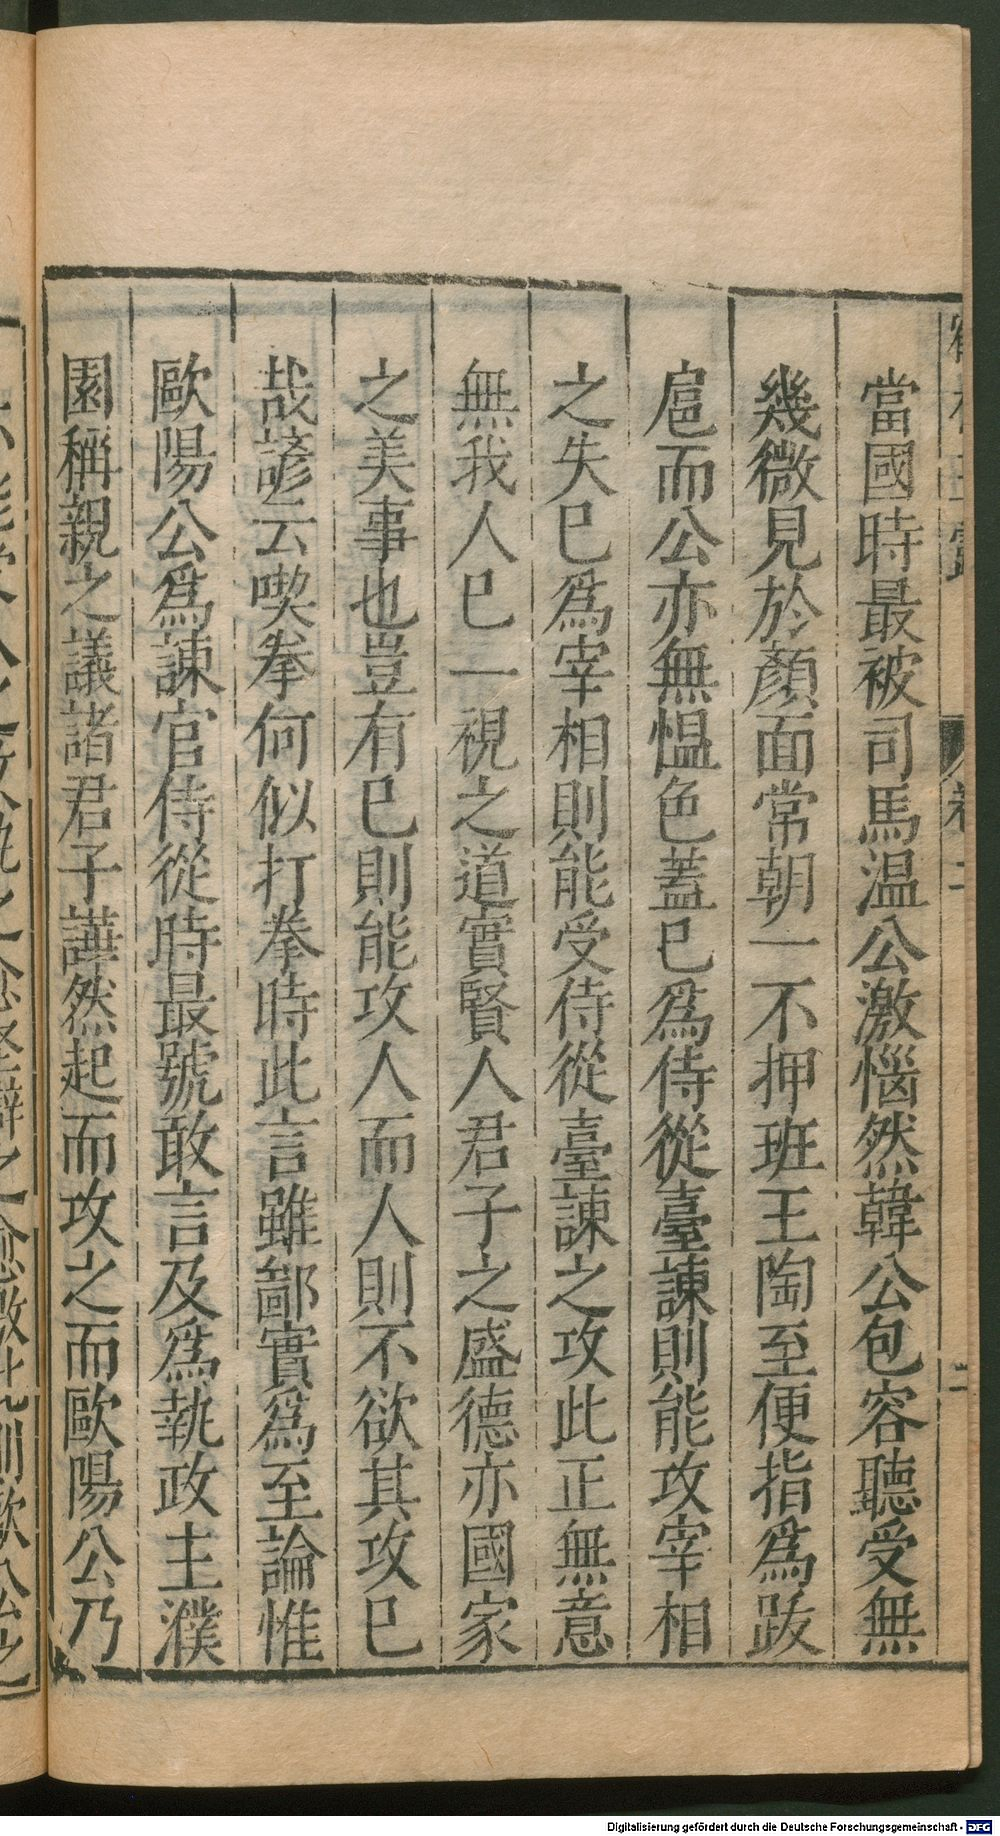 當國時最被司馬温公激惱然韓公包容聽受無
幾微見於顏面常朝一不押班王陶至便指爲跋
扈而公亦無愠色蓋已爲侍從臺諫則能攻宰相
之失已爲宰相則能受侍從臺諫之攻此正無意
無我人已一視之道實賢人君子之盛德亦國家
之美事也豈有已則能攻人而人則不欲其攻已
哉諺云喫拳何似打拳時此言雖鄙實爲至論惟
歐陽公爲諫官侍從時最號敢言及爲執政主濮
園稱親之議諸君子譁然起而攻之而歐陽公乃
Digitalisierung gefördert durch die Deutsche Forschungsgemeinschaft - DFG